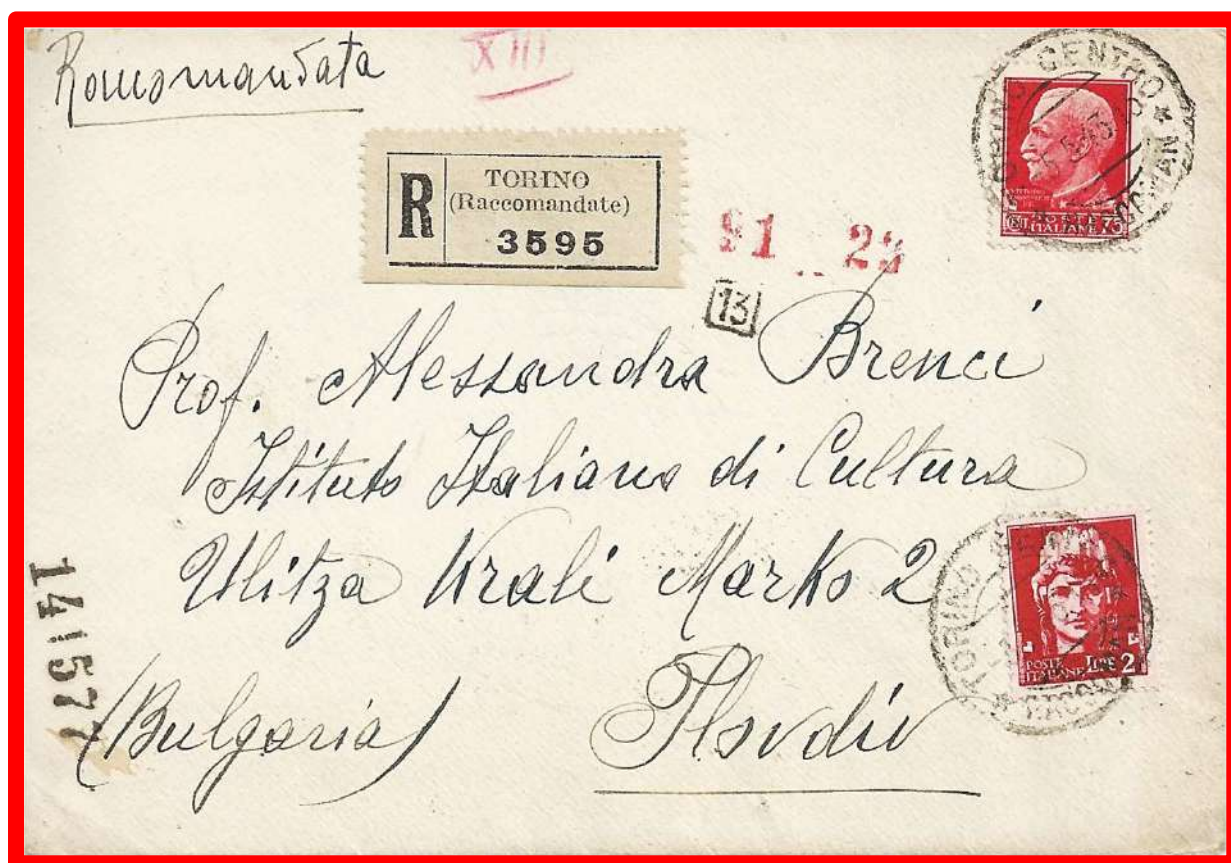 Raccomandata
XIII
R
TORINO
(Raccomandate)
3595
TORINO CENTRO
ITALIANE 75
91 22
13
Prof. Alessandra Brenci
Istituto Italiano di Cultura
Ulitza Krali Marko 2
TORINO
POSTE
ITALIANE LIRE 2
14577
(Bulgaria) Plovdiv